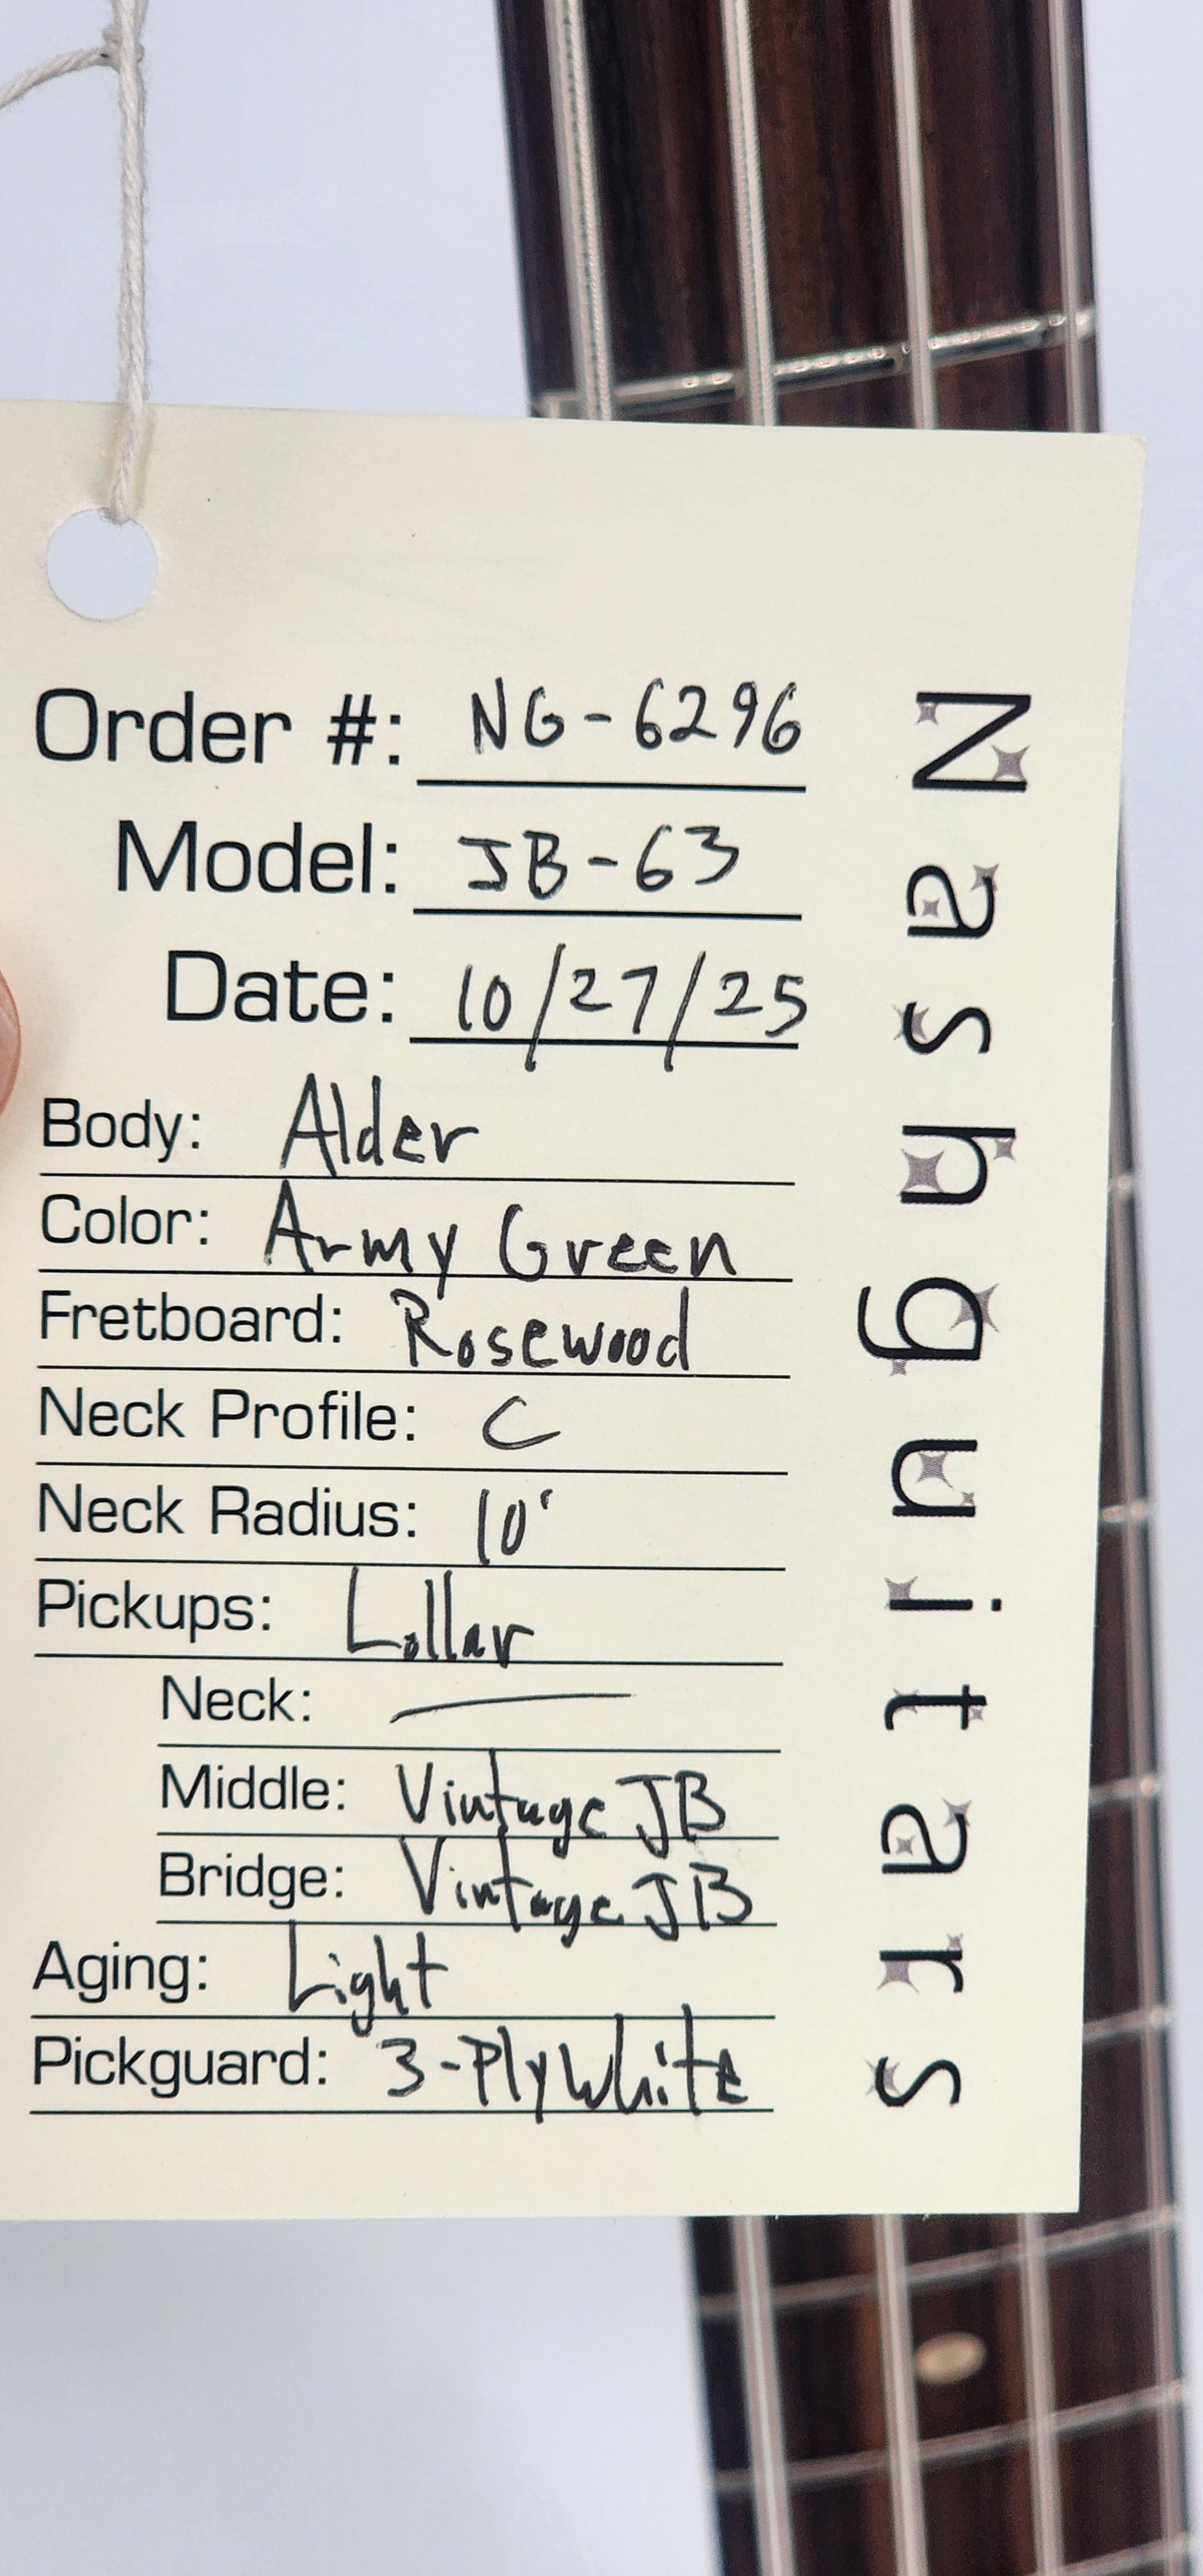 Order #: NG-6296
Model: JB-63
Date: 10/27/25
Body: Alder
Color: Army Green
Fretboard: Rosewood
Neck Profile: C
Neck Radius: 10'
Pickups: Lollar
Neck: —
Middle: Vintage JB
Bridge: Vintage JB
Aging: Light
Pickguard: 3-Ply White
Nash guitars